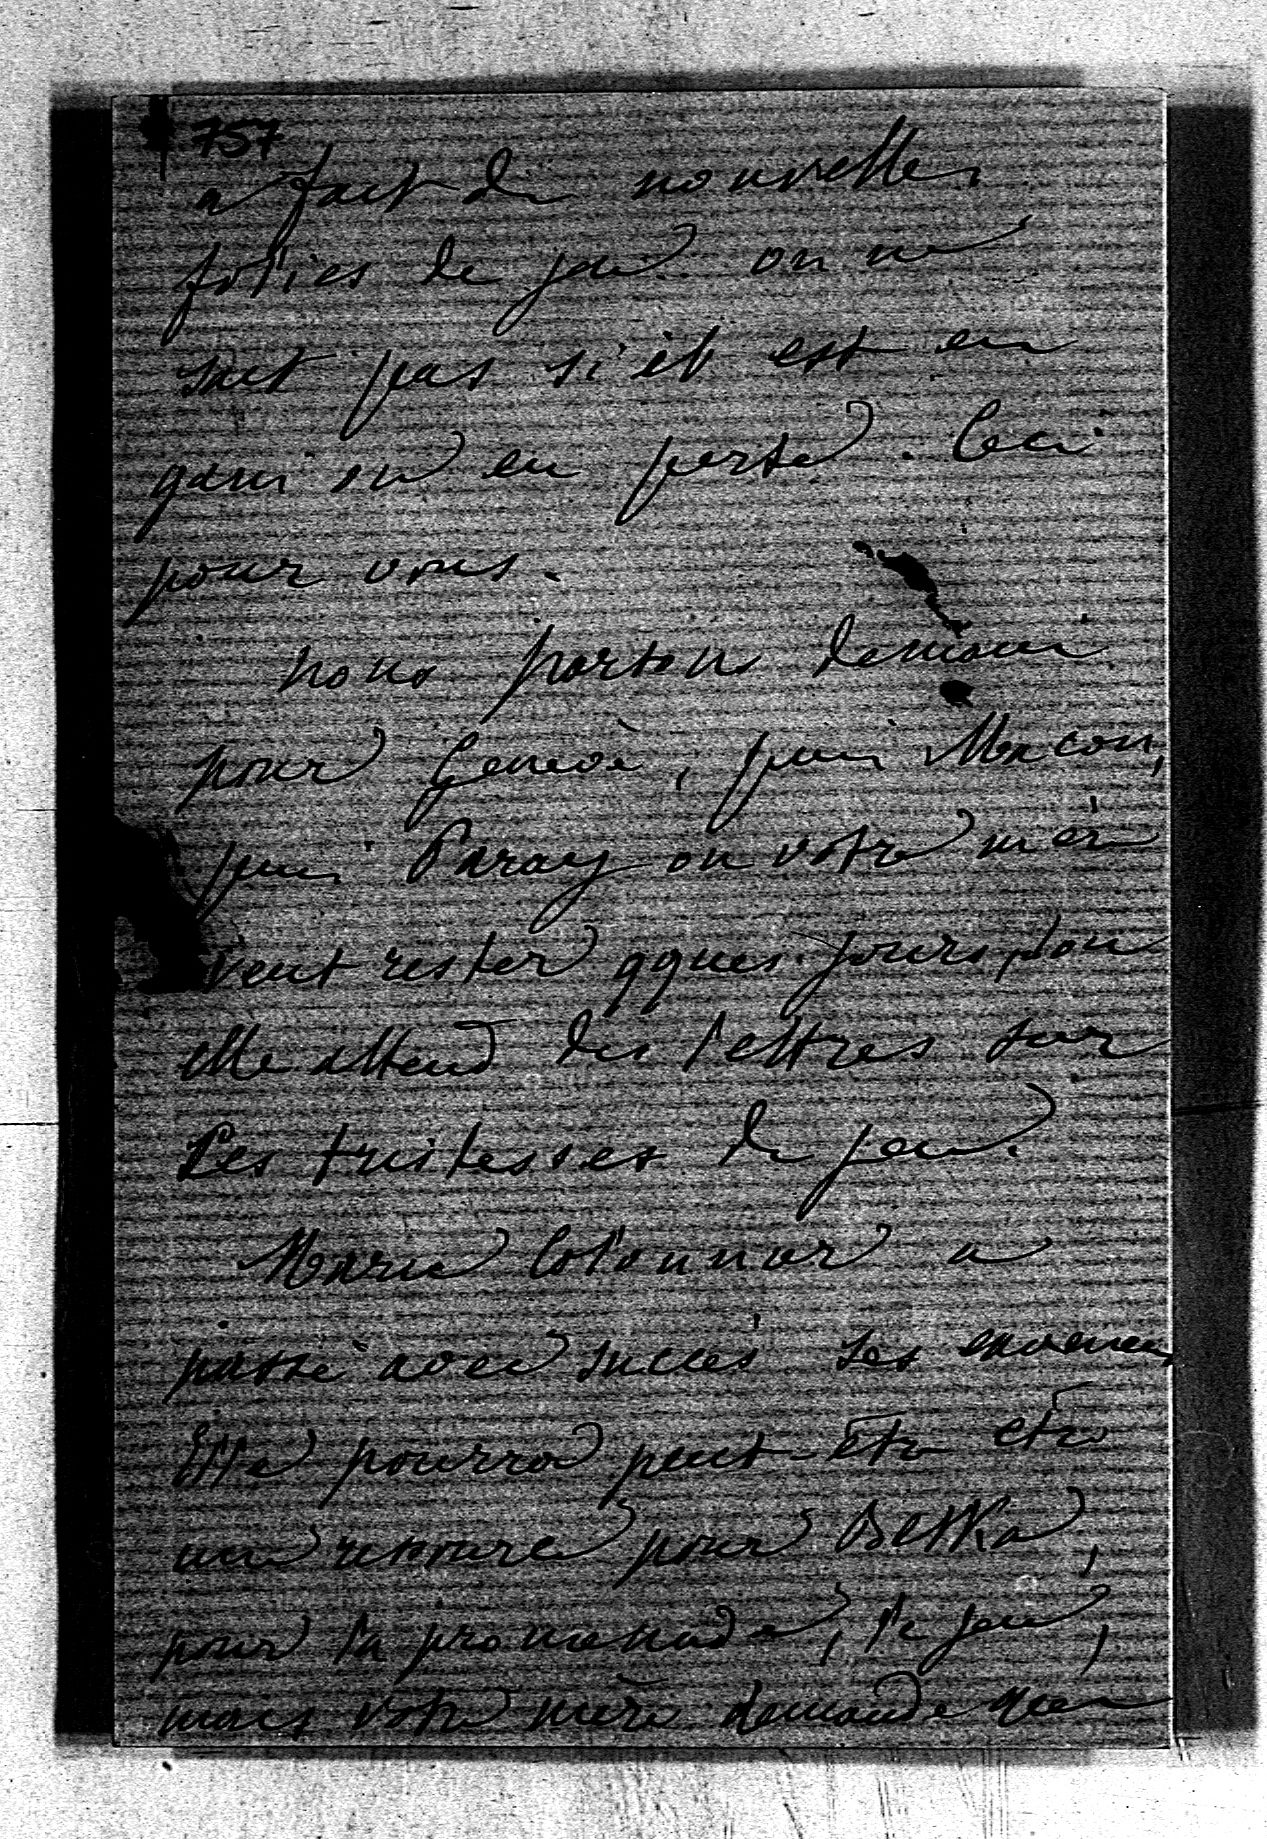 757
a fait de nouvelles
folies de jeu on ne
sait pas si il est en
gain ou en perte. Ceci
pour vous.
Nous partons demain
pour Genève, puis Macon,
puis Paray ou votre mère
veut rester qques jours, ou
elle attend des lettres sur
les tristesses de jeu.
Marie Colonnar a
passé avec succès ses examens
Elle pourra peut-être etre
une ressource pour Betka,
pour la promenade, le jeu,
mais votre mère demande que